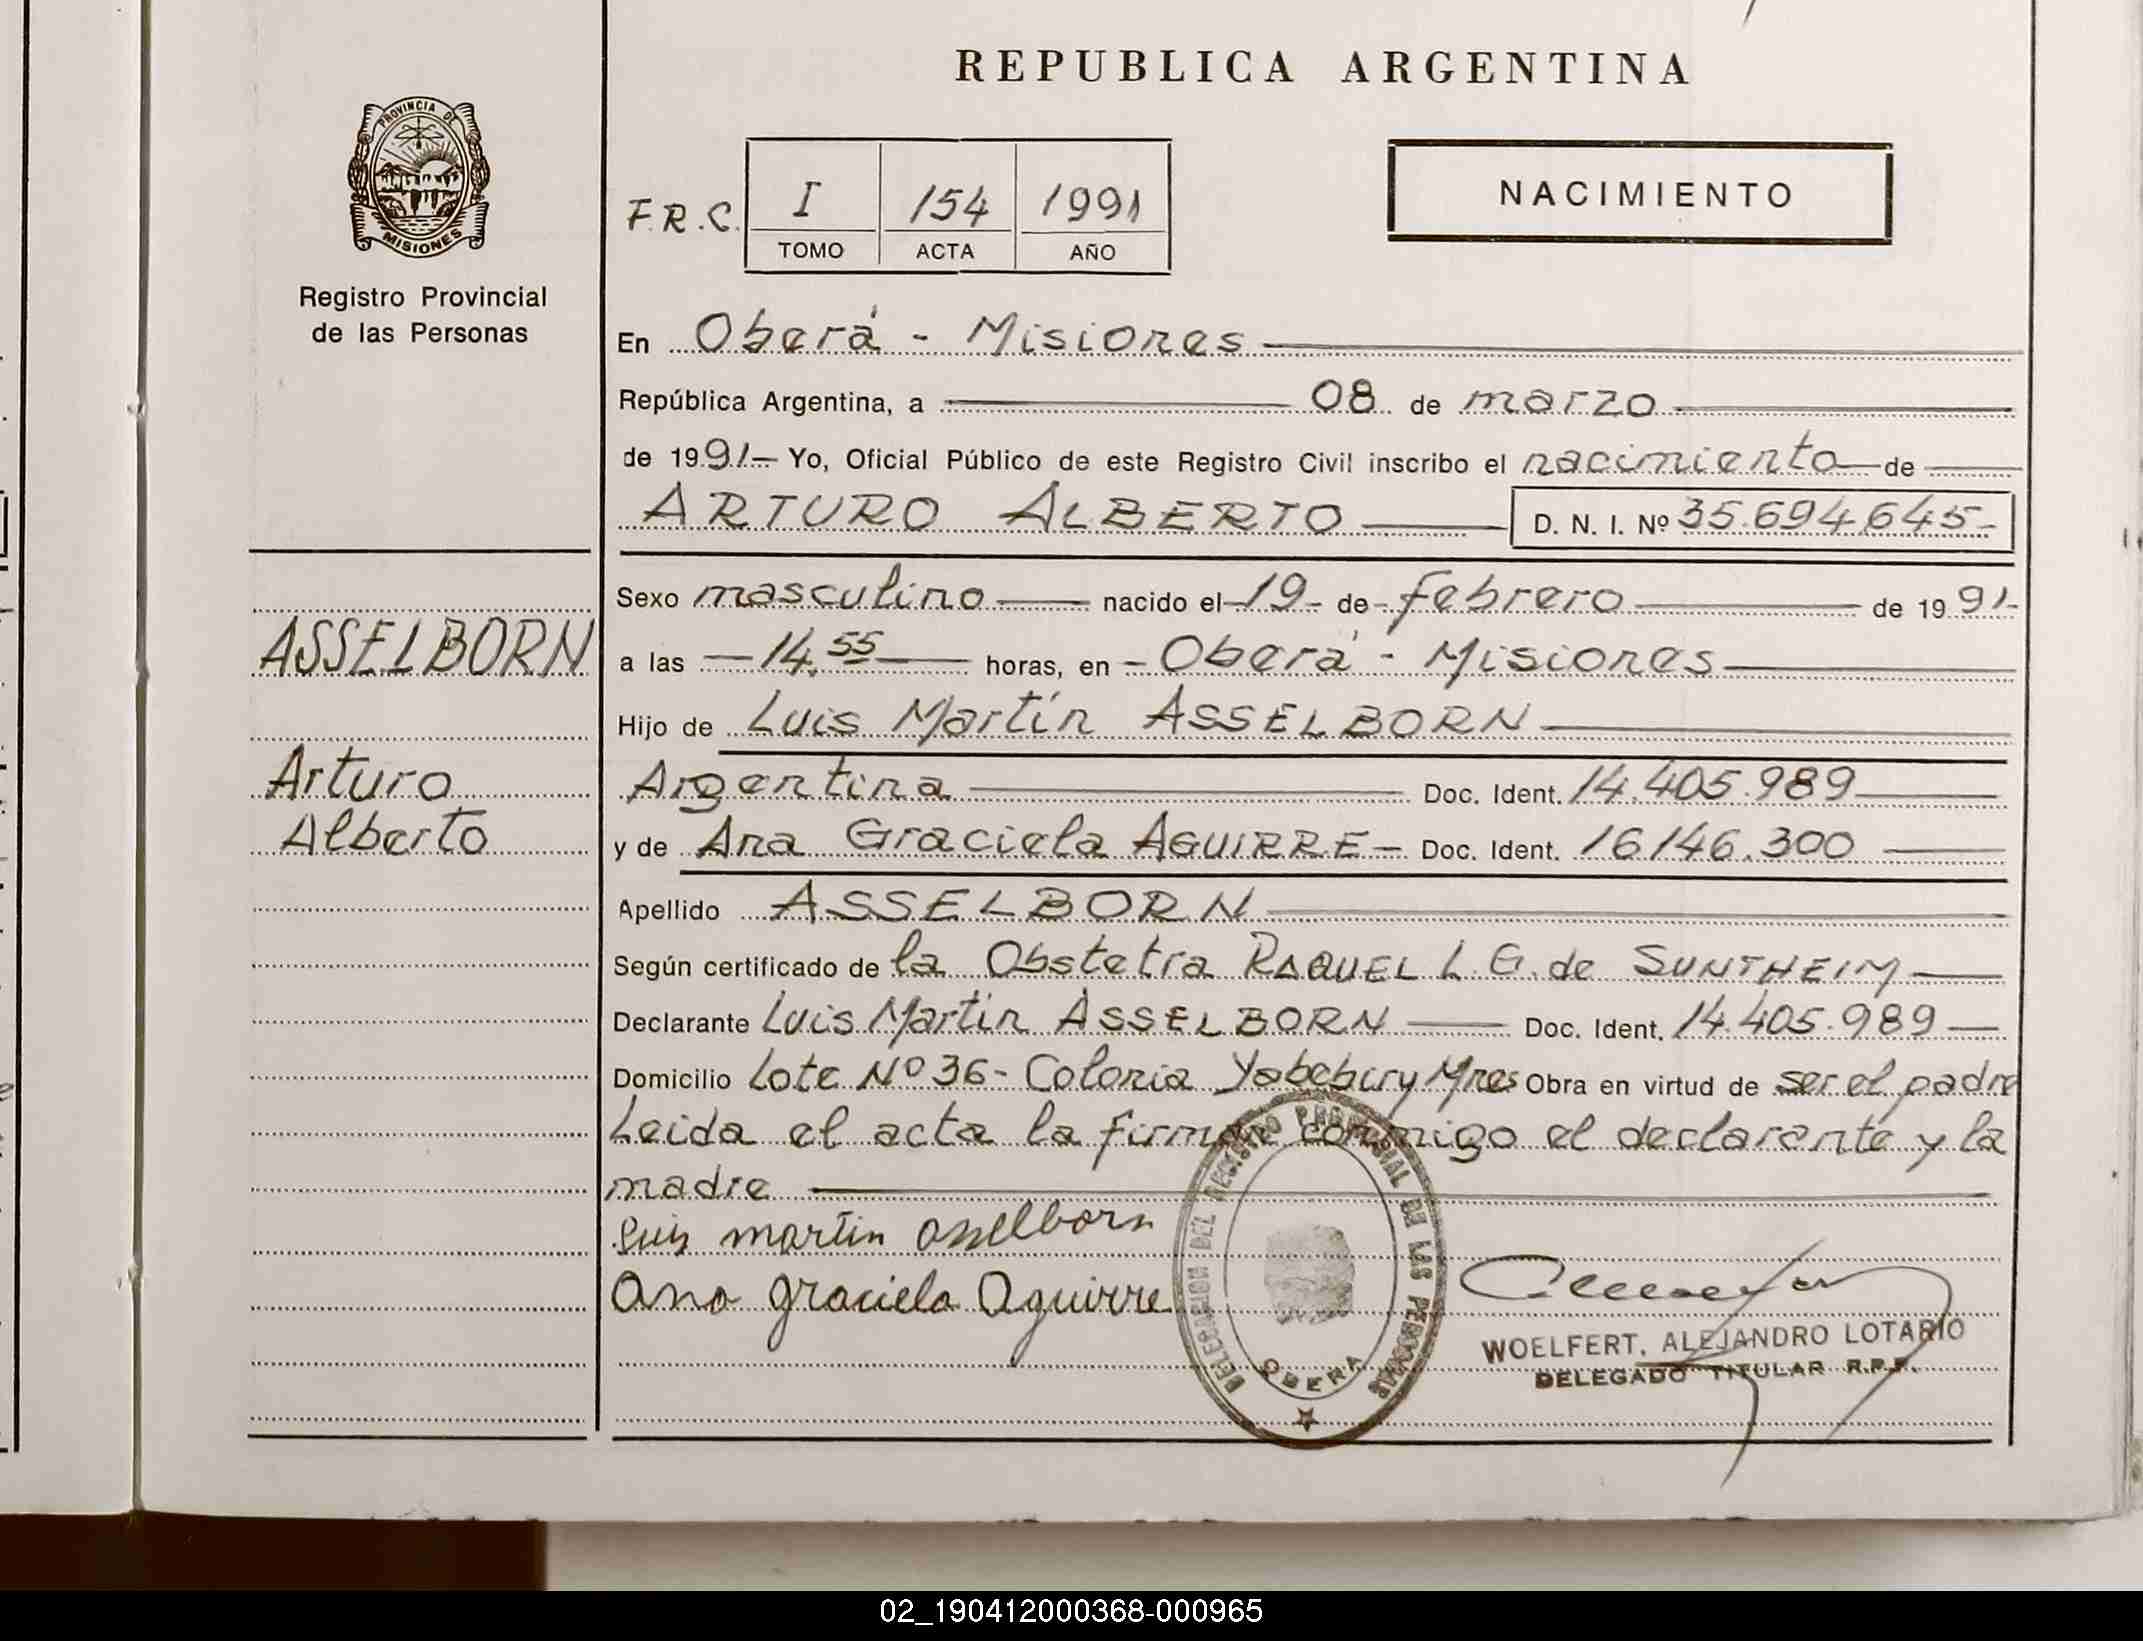 REPUBLICA ARGENTINA
PROVINCIA DE
MISIONES
Registro Provincial
de las Personas
F.R.C.
I 154 1991
TOMO ACTA AÑO
NACIMIENTO
En Oberá - Misiones
República Argentina, a 08 de marzo
de 1991- Yo, Oficial Público de este Registro Civil inscribo el nacimiento de
ARTURO ALBERTO D. N. I. Nº 35.694.645-
ASSELBORN
Arturo
Alberto
Sexo masculino nacido el 19 de febrero de 1991-
a las 14,55 horas, en Oberá - Misiones
Hijo de Luis Martín ASSELBORN
Argentina Doc. Ident. 14.405.989
y de Ana Graciela AGUIRRE Doc. Ident. 16.146.300
Apellido ASSELBORN
Según certificado de la Obstetra RAQUEL L. G. de SUNTHEIM
Declarante Luis Martin ASSELBORN Doc. Ident. 14.405.989
Domicilio Lote Nº 36- Colonia Yabebiry Mnes Obra en virtud de ser el padre
Leida el acta la firman conmigo el declarante y la
madre
Luis martin asselborn
Ana graciela Aguirre
DELEGACION DEL REGISTRO PROVINCIAL DE LAS PERSONAS
OBERA
WOELFERT, ALEJANDRO LOTARIO
DELEGADO TITULAR R.P.P.
02_190412000368-000965